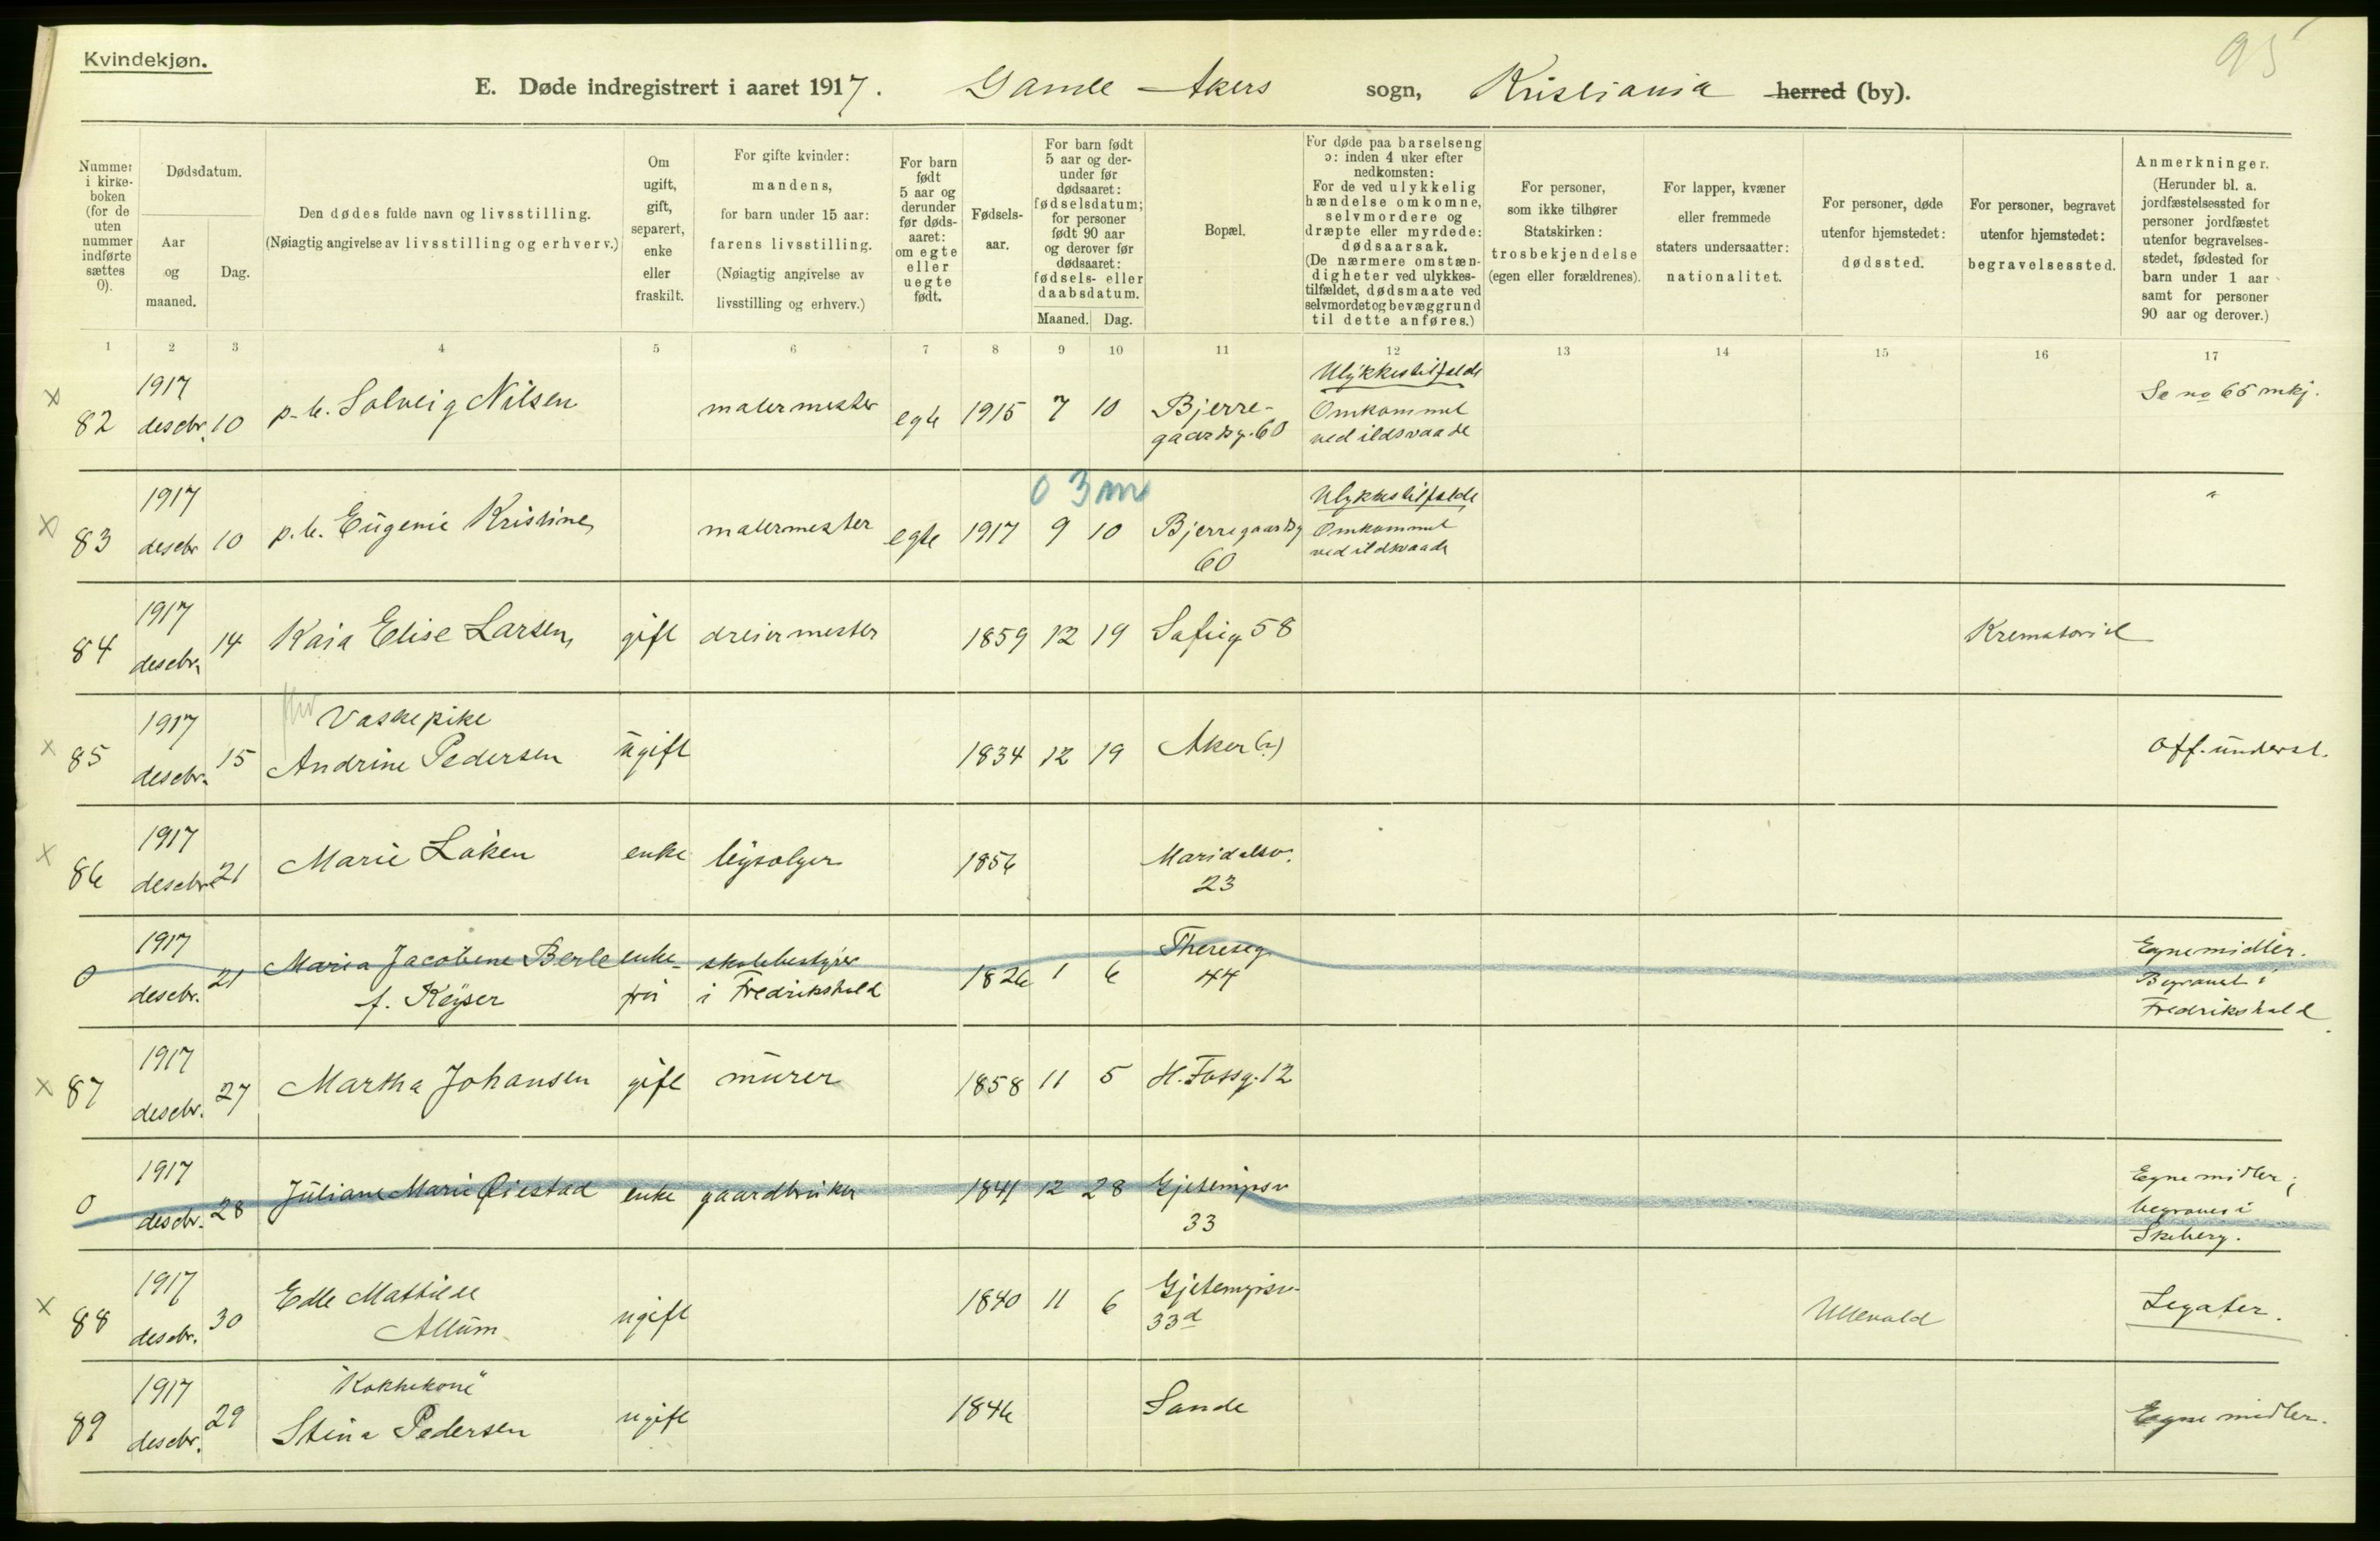 95
Kvindekjøn.
E. Døde indregistrert i aaret 1917. Gamle Akers sogn, Kristiania herred (by).
Nummer i kirke-boken (for de uten nummer indførte sættes 0).
Dødsdatum.
Aar og maaned.
Dag.
Den dødes fulde navn og livsstilling.
(Nøiagtig angivelse av livsstilling og erhverv.)
Om ugift, gift, separert, enke eller fraskilt.
For gifte kvinder: mandens, for barn under 15 aar: farens livsstilling.
(Nøiagtig angivelse av livsstilling og erhverv.)
For barn født 5 aar og derunder før døds-aaret: om egte eller uegte født.
Fødsels-aar.
For barn født 5 aar og der-under før dødsaaret: fødselsdatum; for personer født 90 aar og derover før dødsaaret: fødsels- eller daabsdatum.
Maaned. Dag.
Bopæl.
For døde paa barselseng ɔ: inden 4 uker efter nedkomsten: For de ved ulykkelig hændelse omkomne, selvmordere og dræpte eller myrdede: dødsaarsak.
(De nærmere omstæn-digheter ved ulykkes-tilfældet, dødsmaate ved selvmordet og bevæggrund til dette anføres.)
For personer, som ikke tilhører Statskirken: trosbekjendelse (egen eller forældrenes).
For lapper, kvæner eller fremmede staters undersaatter: nationalitet.
For personer, døde utenfor hjemstedet: dødssted.
For personer, begravet utenfor hjemstedet: begravelsessted.
Anmerkninger.
(Herunder bl. a. jordfæstelsessted for personer jordfæstet utenfor begravelses-stedet, fødested for barn under 1 aar samt for personer 90 aar og derover.)
1 2 3 4 5 6 7 8 9 10 11 12 13 14 15 16 17
x 82 1917 desebr. 10 p.b. Solveig Nilsen malermester egte 1915 7 10 Bjerre-gaardsg. 60 Ulykkestilfælde Omkommet ved ildsvaade Se no 65 mkj.
0 3 m
x 83 1917 desebr 10 p.b. Eugenie Kristine malermester egte 1917 9 10 Bjerregaardsg 60 Ulykkestilfælde Omkommet ved ildsvaade "
84 1917 desebr. 14 Kaia Elise Larsen gift dreiermester 1859 12 19 Sofieg 58 Krematoriet
x 85 1917 desebr. 15 Vaskepike Andrine Pedersen ugift 1834 12 19 Aker (?) Off. underst.
x 86 1917 desebr. 21 Marie Løken enke 1856 Maridalsv. 23
0 1917 desebr. 21 Maria Jacobine Berle f. Keyser enke- skolebestyrer i Fredrikshald 1826 1 6 Thereseg 44 Egne midler. Begravet i Fredrikshald
x 87 1917 desebr. 27 Martha Johansen gift murer 1858 11 5 H. Fossg. 12
0 1917 desebr. 28 Juliane Marie Øiestad enke gaardbruker 1841 12 28 Gjetemyrsv 33 Egne midler; begraves i Skeberg.
x 88 1917 desebr. 30 Edle Mathilde Allum ugift 1840 11 6 Gjetemyrsv. 33d Ullevold Legater.
89 1917 desebr. 29 "Kokkekone" Stina Pedersen ugift 1846 Sande Egne midler.